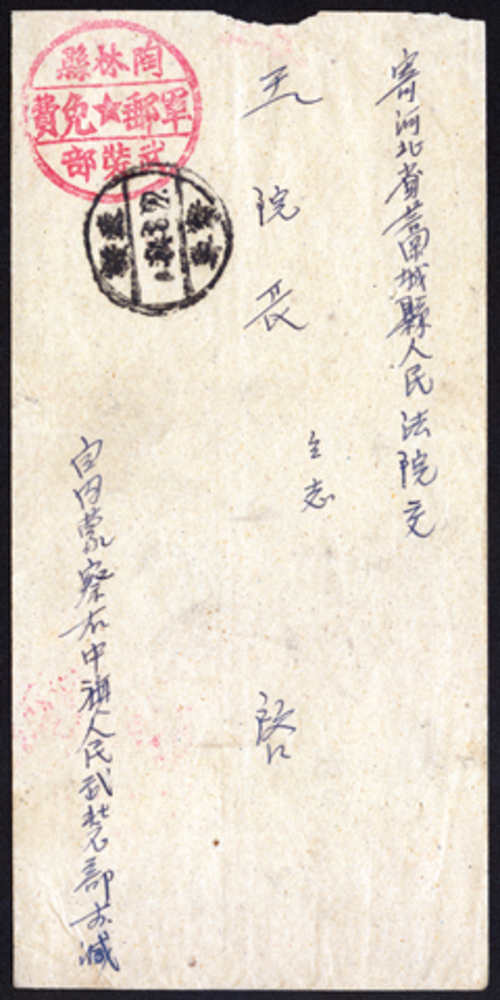 寄河北省藁城縣人民法院交
王院長
仝志
啓
自内蒙察右中旗人民武装部
陶林縣
軍郵★免費
武裝部